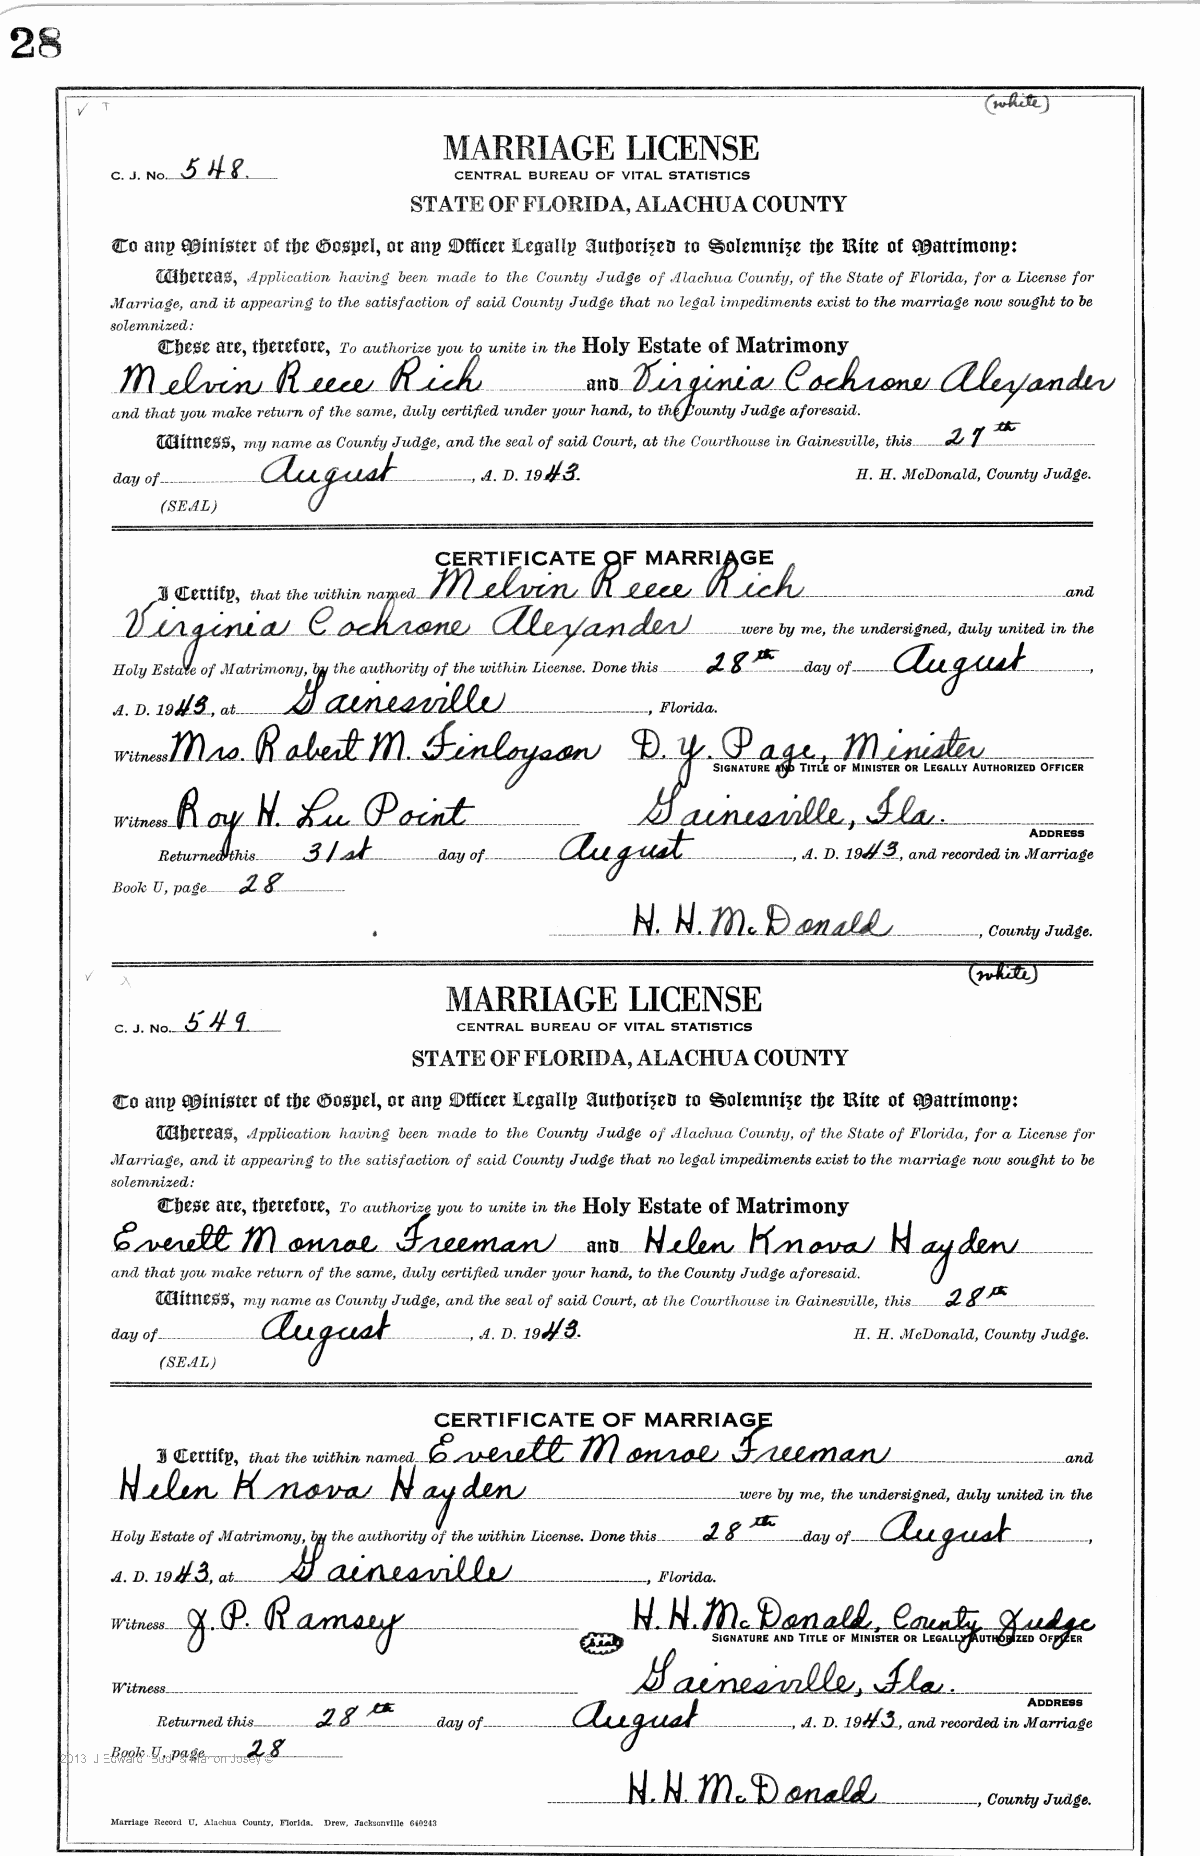 28
(white)
MARRIAGE LICENSE
C. J. No. 548.
CENTRAL BUREAU OF VITAL STATISTICS
STATE OF FLORIDA, ALACHUA COUNTY
To any Minister of the Gospel, or any Officer Legally Authorized to Solemnize the Rite of Matrimony:
Whereas, Application having been made to the County Judge of Alachua County, of the State of Florida, for a License for
Marriage, and it appearing to the satisfaction of said County Judge that no legal impediments exist to the marriage now sought to be
solemnized:
These are, therefore, To authorize you to unite in the Holy Estate of Matrimony
Melvin Reece Rich and Virginia Cochrone Alexander
and that you make return of the same, duly certified under your hand, to the County Judge aforesaid.
Witness, my name as County Judge, and the seal of said Court, at the Courthouse in Gainesville, this 27th
day of August, A. D. 1943. H. H. McDonald, County Judge.
(SEAL)
CERTIFICATE OF MARRIAGE
I Certify, that the within named Melvin Reece Rich and
Virginia Cochrone Alexander were by me, the undersigned, duly united in the
Holy Estate of Matrimony, by the authority of the within License. Done this 28th day of August,
A. D. 1943, at Gainesville, Florida.
Witness Mrs. Robert M. Finloyson D. Y. Page, Minister
SIGNATURE AND TITLE OF MINISTER OR LEGALLY AUTHORIZED OFFICER
Witness Roy H. Lu Point Gainesville, Fla.
ADDRESS
Returned this 31st day of August, A. D. 1943, and recorded in Marriage
Book U, page 28
H. H. McDonald, County Judge.
(white)
MARRIAGE LICENSE
C. J. No. 549.
CENTRAL BUREAU OF VITAL STATISTICS
STATE OF FLORIDA, ALACHUA COUNTY
To any Minister of the Gospel, or any Officer Legally Authorized to Solemnize the Rite of Matrimony:
Whereas, Application having been made to the County Judge of Alachua County, of the State of Florida, for a License for
Marriage, and it appearing to the satisfaction of said County Judge that no legal impediments exist to the marriage now sought to be
solemnized:
These are, therefore, To authorize you to unite in the Holy Estate of Matrimony
Everett Monroe Freeman and Helen Knova Hayden
and that you make return of the same, duly certified under your hand, to the County Judge aforesaid.
Witness, my name as County Judge, and the seal of said Court, at the Courthouse in Gainesville, this 28th
day of August, A. D. 1943. H. H. McDonald, County Judge.
(SEAL)
CERTIFICATE OF MARRIAGE
I Certify, that the within named Everett Monroe Freeman and
Helen Knova Hayden were by me, the undersigned, duly united in the
Holy Estate of Matrimony, by the authority of the within License. Done this 28th day of August,
A. D. 1943, at Gainesville, Florida.
Witness J. P. Ramsey H. H. McDonald, County Judge
(seal) SIGNATURE AND TITLE OF MINISTER OR LEGALLY AUTHORIZED OFFICER
Witness Gainesville, Fla.
ADDRESS
Returned this 28th day of August, A. D. 1943, and recorded in Marriage
Book U, page 28
2013 J Edward "Bud" & Marion Josey ©
H. H. McDonald, County Judge.
Marriage Record U, Alachua County, Florida. Drew, Jacksonville 640243